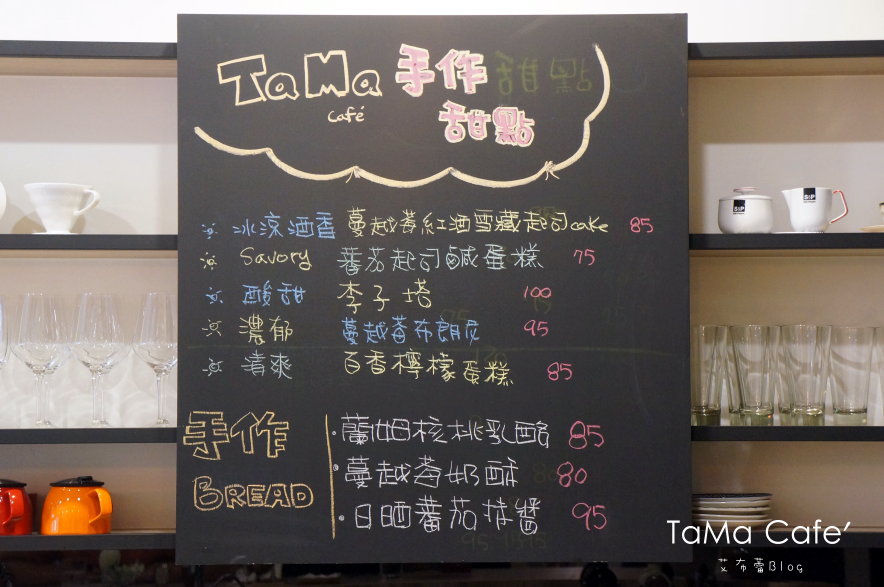 TaMa 手作 甜點
café 甜點
冰涼酒香 蔓越莓紅酒雪藏起司cake 85
Savory 蕃茄起司鹹蛋糕 75
酸甜 李子塔 100
濃郁 蔓越莓布朗尼 95
清爽 百香檸檬蛋糕 85
手作
BREAD
·蘭姆核桃乳酪 85
·蔓越莓奶酥 80
·日晒蕃茄抹醬 95
SIP
SIP
TaMa Cafe'
艾布蕾Blog